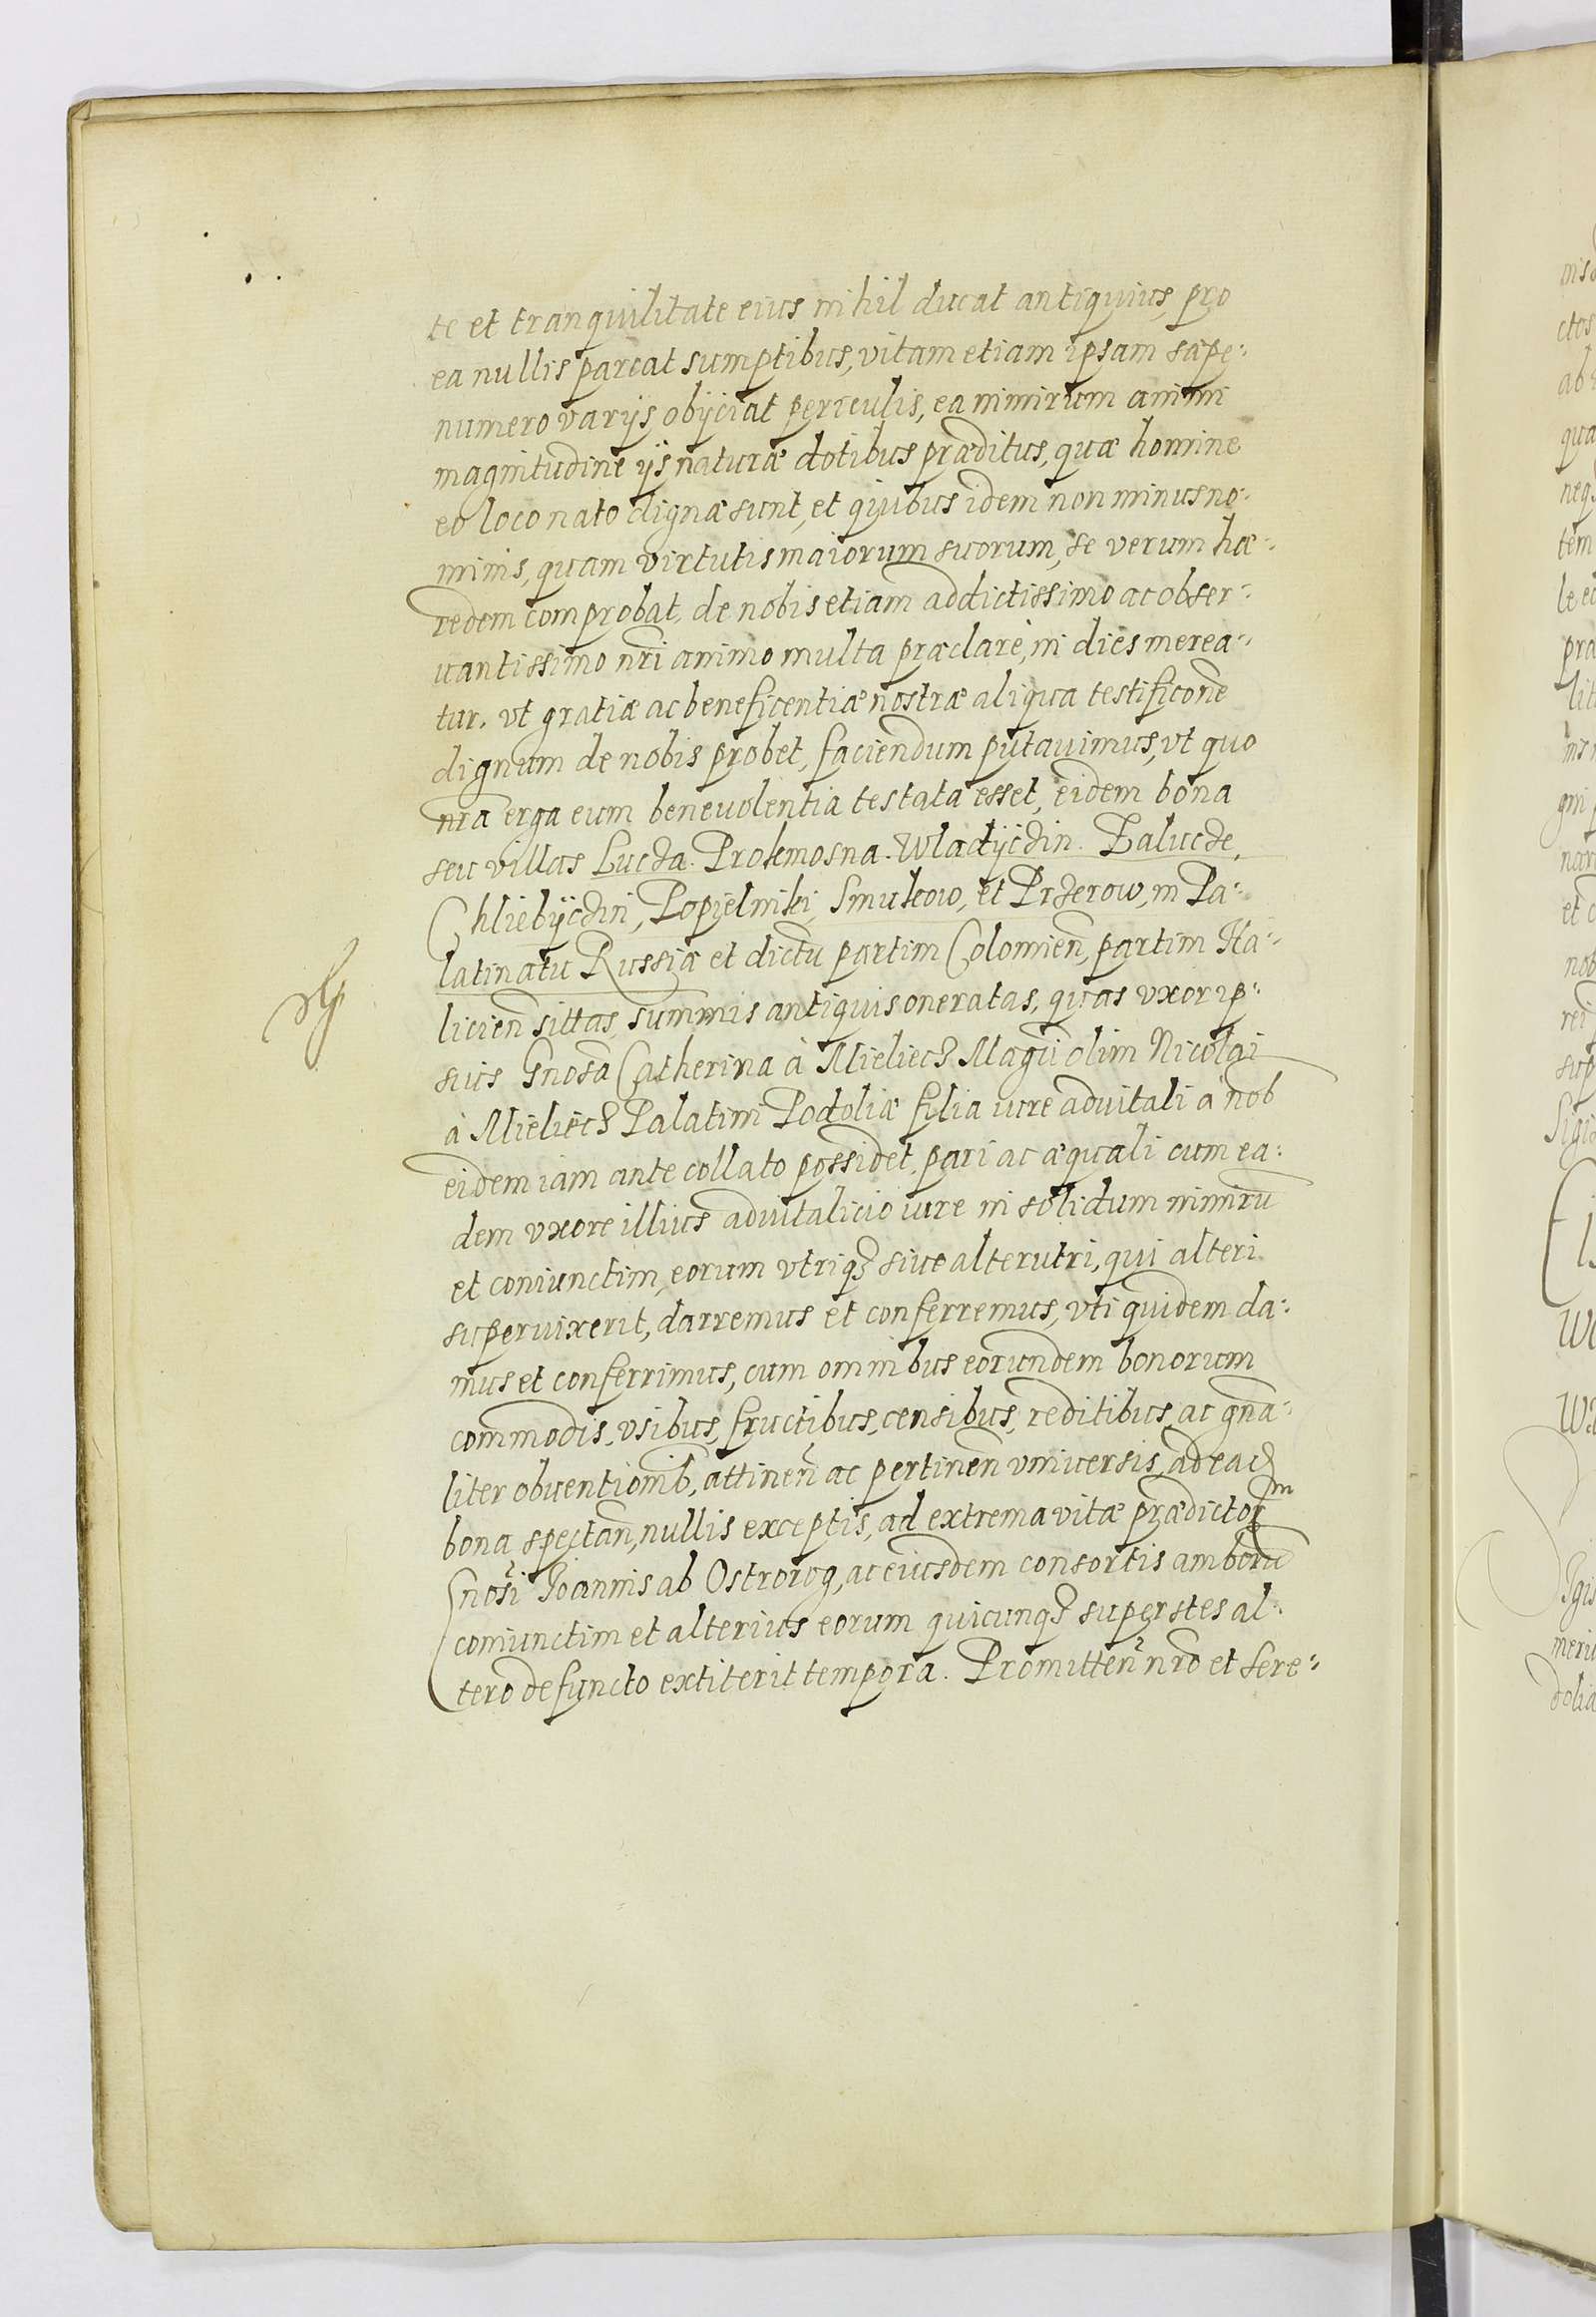 te et tranquilitate eius nihil ducat antiquius, pro
ea nullis parcat sumptibus, vitam etiam ipsam sæpe-:
numero varijs obijciat periculis, ea nimirum animi
magnitudine ijs naturæ dotibus præditus, quæ homine
eo loco nato dignæ sunt, et quibus idem non minus no-:
minis, quam virtutis maiorum suorum, se verum hæ-:
redem comprobat, de nobis etiam addictissimo ac obser-:
uantissimo nrĩ animo multa præclarè, in dies merea-:
tur. vt gratiæ ac beneficentiæ nostræ aliqua testificonẽ
dignum de nobis probet, faciendum putauimus, vt quo
nrã erga eum beneuolentia testata esset, eidem bona
seu villas Lucza. Prosemosna. Wladÿczin. Zalucze,
Chliebÿczin, Popielniki, Smukow, et Przerow, in Pa-:
latinatu Russiæ et dictũ partim Colomieñ, partim Ha-:
licieñ sittas, summis antiquis oneratas, quas vxor ip-:
sius Gnosã Catherina à Mieliecz Magci olim Nicolai
à Mieliecz Palatini Podoliæ filia iure aduitali a nob
eidem iam ante collato possidet, pari ac æquali cum ea-:
dem vxore illius aduitalicio iure in solidum nimirũ
et coniunctim, eorum vtriqз siue alterutri, qui alteri
superuixerit, darremus et conferremus, vti quidem da-:
mus et conferrimus, cum omnibus eorundem bonorum
commodis, vsibus, fructibus, censibus, reditibus, ac gnã-:
liter obuentionib, attineñ ac pertineñ vniuersis, ad ea
bona spectañ, nullis exceptis, ad extrema vitæ prædictor
Gnosi Joannis ab Ostrorog, ac eiusdem consortis amborũ
coniunctim et alterius eorum quicunqз superstes al-:
tero defuncto extiterit tempora. Promitteñ nrõ et sere-: